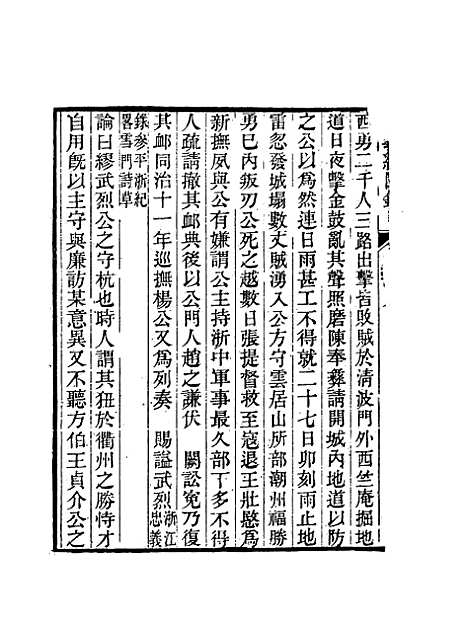 西勇二千人三路出擊皆敗賊於清波門外西竺庵掘地
道日夜擊金鼓亂其聲照磨陳奉彝請開城內地道以防
之公以為然連日雨甚工不得就二十七日卯刻雨止地
雷忽發城塌數丈賊湧入公方守雲居山所部潮州福勝
勇已內叛刃公死之越數日張提督救至寇退王壯愍為
新撫夙與公有嫌謂公主持浙中軍事最久部下多不得
人疏請撤其䘏典後以公門人趙之謙伏　闕訟冤乃復
其䘏同治十一年巡撫楊公又為列奏　賜諡武烈浙江忠義
錄參平浙紀
畧雪門詩草
論曰繆武烈公之守杭也時人謂其狃於衢州之勝恃才
自用既以主守與廉訪某意異又不聽方伯王貞介公之